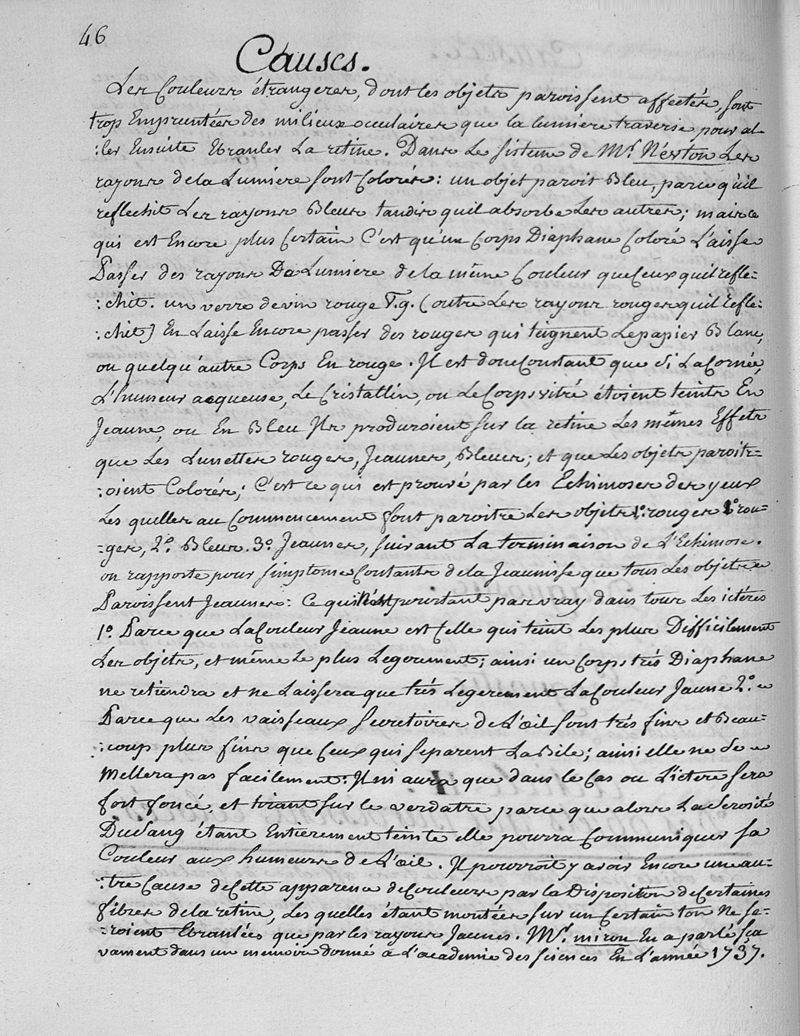 46
Causes.
Les Couleurs étrangeres, dont les objets paroissent affectés, sont
trop Empruntées des milieux occulaires que la lumiere traverse pour al-
-:ler Ensuite Ebranler La retine. Dans Le sisteme de Mr. Newton Les
rayons de la Lumiere sont Colorés: un objet paroit Bleu, parce qu'il
reflechit Les rayons Bleus tandis quil absorbe Les autres; mais ce
qui est Encore plus Certain C'est qu'un Corps Diaphane Coloré Laisse
Passer des rayons De Lumiere de la même Couleur que Ceux quil refle-
-:chit. un verre de vin rouge V.g. (outre Les rayons rouges quil refle-
-:chit) En Laisse Encore passer des rouges qui teignent Le papier Blanc,
ou quelqu'autre Corps En rouge. Il est donc Constant que si La Cornée,
L'humeur acqueuse, Le Cristallin, ou Le Corps vitré étoient teints En
Jeaune, ou En Bleu Ils produroient sur la retine Les mêmes Effets
que Les Lunettes rouges, Jeaunes, Bleues; et que Les objets paroit-
-:oient Colorés; C'est ce qui est prouvé par les Echimoses des yeux
Les quelles au Commencement font paroitre Les objets rouges 1º. rou-
-:ges, 2º. Bleus. 3º. Jeaunes, suivant La terminaison de L'Echimose.
on rapporte pour simptome Constants de la Jeaunisse que tous Les objets
Paroissent Jeaunes: Ce qui n'est pourtant pas vray dans tous Les ictéres
1º. Parce que La Couleur Jeaune est Celle qui teint Les plus Difficilement
Les objets, et même le plus Legerement; ainsi un Corps trés Diaphane
ne retiendra et ne Laissera que trés Legerement La Couleur Jaune 2º.
Parce que Les vaisseaux secretoires de L'œil sont trés fins et Beau-
-:coup plus fins que Ceux qui separent La Bile; ainsi elle ne se
Mellera pas facilement: Il ni aura que dans le Cas ou L'ictere sera
fort foncé, et tirant sur le verdatre parce que alors La serosité
Du sang étant Entierement teinte elle pourra Communiquer sa
Couleur aux humeurs de L'œil. Il pourroit y avoir Encore une au-
-:tre Cause de Cette apparence de Couleurs par la Disposition de Certaines
fibres de la retine, Les quelles étant montées sur un Certain ton Ne se-
-:roient Ebranlées que par les rayons Jaunes. Mr. miron En a parlé sça-
vament dans un memoire donné à L'academie des sciences En L'année 1737.